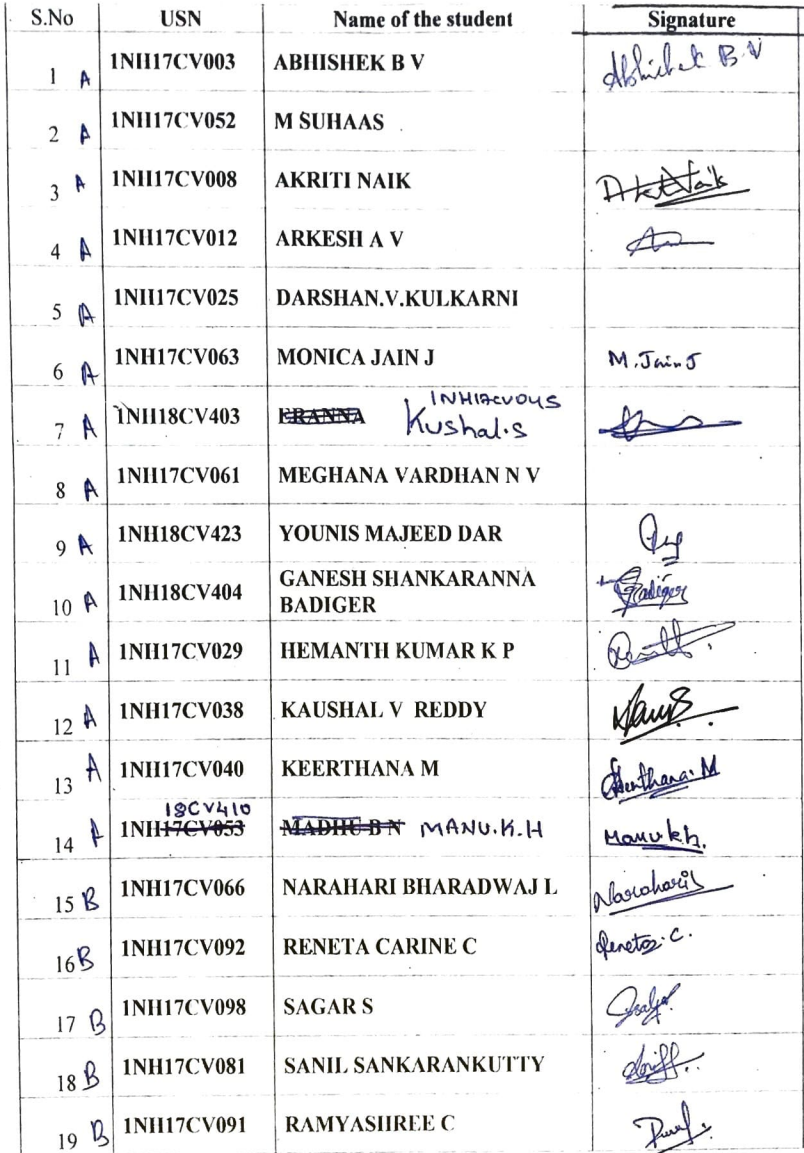 S.No USN Name of the student Signature
1 A 1NH17CV003 ABHISHEK B V Abhishek B.V
2 A 1NH17CV052 M SUHAAS
3 A 1NH17CV008 AKRITI NAIK
4 A 1NH17CV012 ARKESH A V
5 A 1NH17CV025 DARSHAN.V.KULKARNI
6 A 1NH17CV063 MONICA JAIN J M.Jain J
1NH17CV045
7 A 1NH18CV403 ERANNA Kushal.S
8 A 1NH17CV061 MEGHANA VARDHAN N V
9 A 1NH18CV423 YOUNIS MAJEED DAR
10 A 1NH18CV404 GANESH SHANKARANNA
BADIGER Badiger
11 A 1NH17CV029 HEMANTH KUMAR K P
12 A 1NH17CV038 KAUSHAL V REDDY
13 A 1NH17CV040 KEERTHANA M Keerthana.M
18CV410
14 A 1NH17CV053 MADHU B N MANU.K.H Manukh.
15 B 1NH17CV066 NARAHARI BHARADWAJ L Narahari
16 B 1NH17CV092 RENETA CARINE C Reneta.C.
17 B 1NH17CV098 SAGAR S
18 B 1NH17CV081 SANIL SANKARANKUTTY
19 B 1NH17CV091 RAMYASHREE C